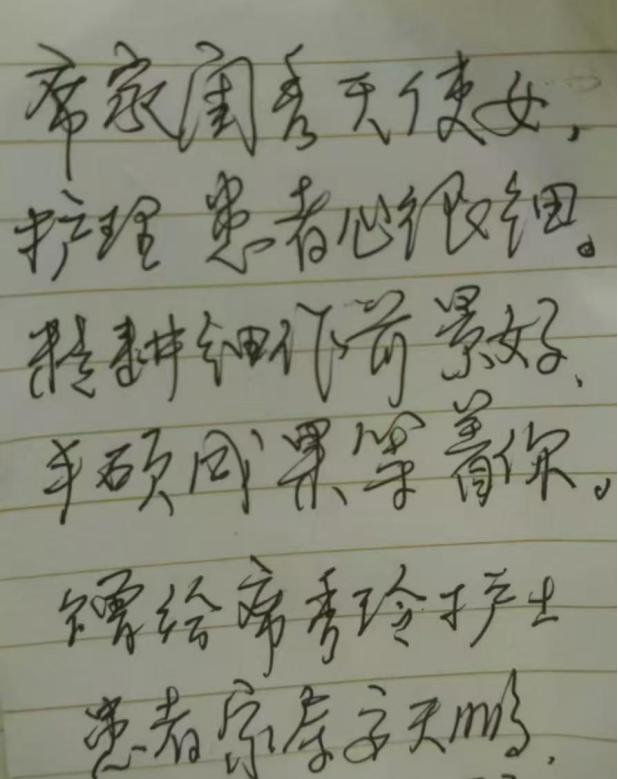 席家闺秀天使女,
护理患者心很细。
精耕细作前景好、
丰硕成果等着你。
赠给席秀玲护士
患者家李天鹏.